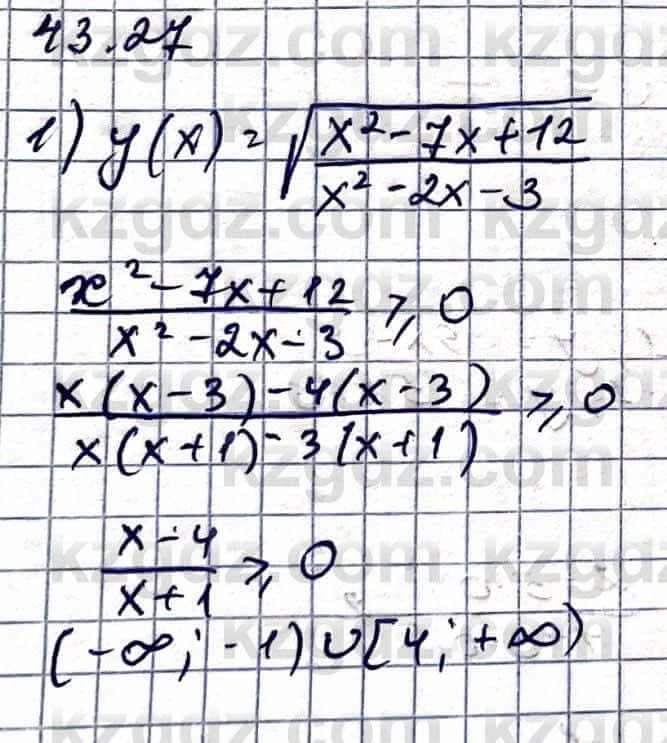 43.27
1) y(x) = √((x² - 7x + 12)/(x² - 2x - 3))
(x² - 7x + 12)/(x² - 2x - 3) ⩾ 0
(x(x - 3) - 4(x - 3))/(x(x + 1) - 3(x + 1)) ⩾ 0
(x - 4)/(x + 1) ⩾ 0
(-∞; -1) ∪ [4; +∞)
kzgdz.com